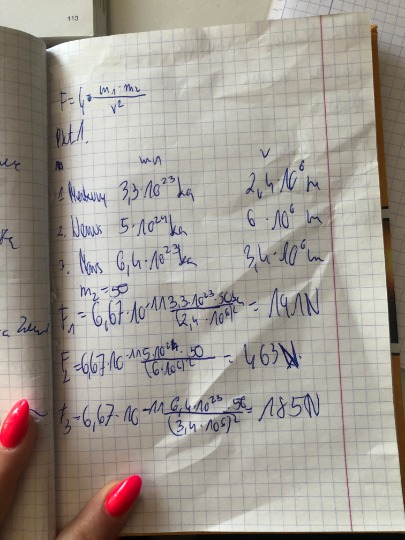 113
F = G · m1 · m2 / r²
Pkt 1.
m1 r
1. Merkury 3,3 · 10²³ kg 2,4 · 10⁶ m
2. Wenus 5 · 10²⁴ kg 6 · 10⁶ m
3. Mars 6,4 · 10²³ kg 3,4 · 10⁶ m
m2 = 50
F1 = 6,67 · 10⁻¹¹ 3,3 · 10²³ · 50 / (2,4 · 10⁶)² = 191N
F2 = 6,67 · 10⁻¹¹ 5 · 10²⁴ · 50 / (6 · 10⁶)² = 463N
F3 = 6,67 · 10⁻¹¹ 6,4 · 10²³ · 50 / (3,4 · 10⁶)² = 185N